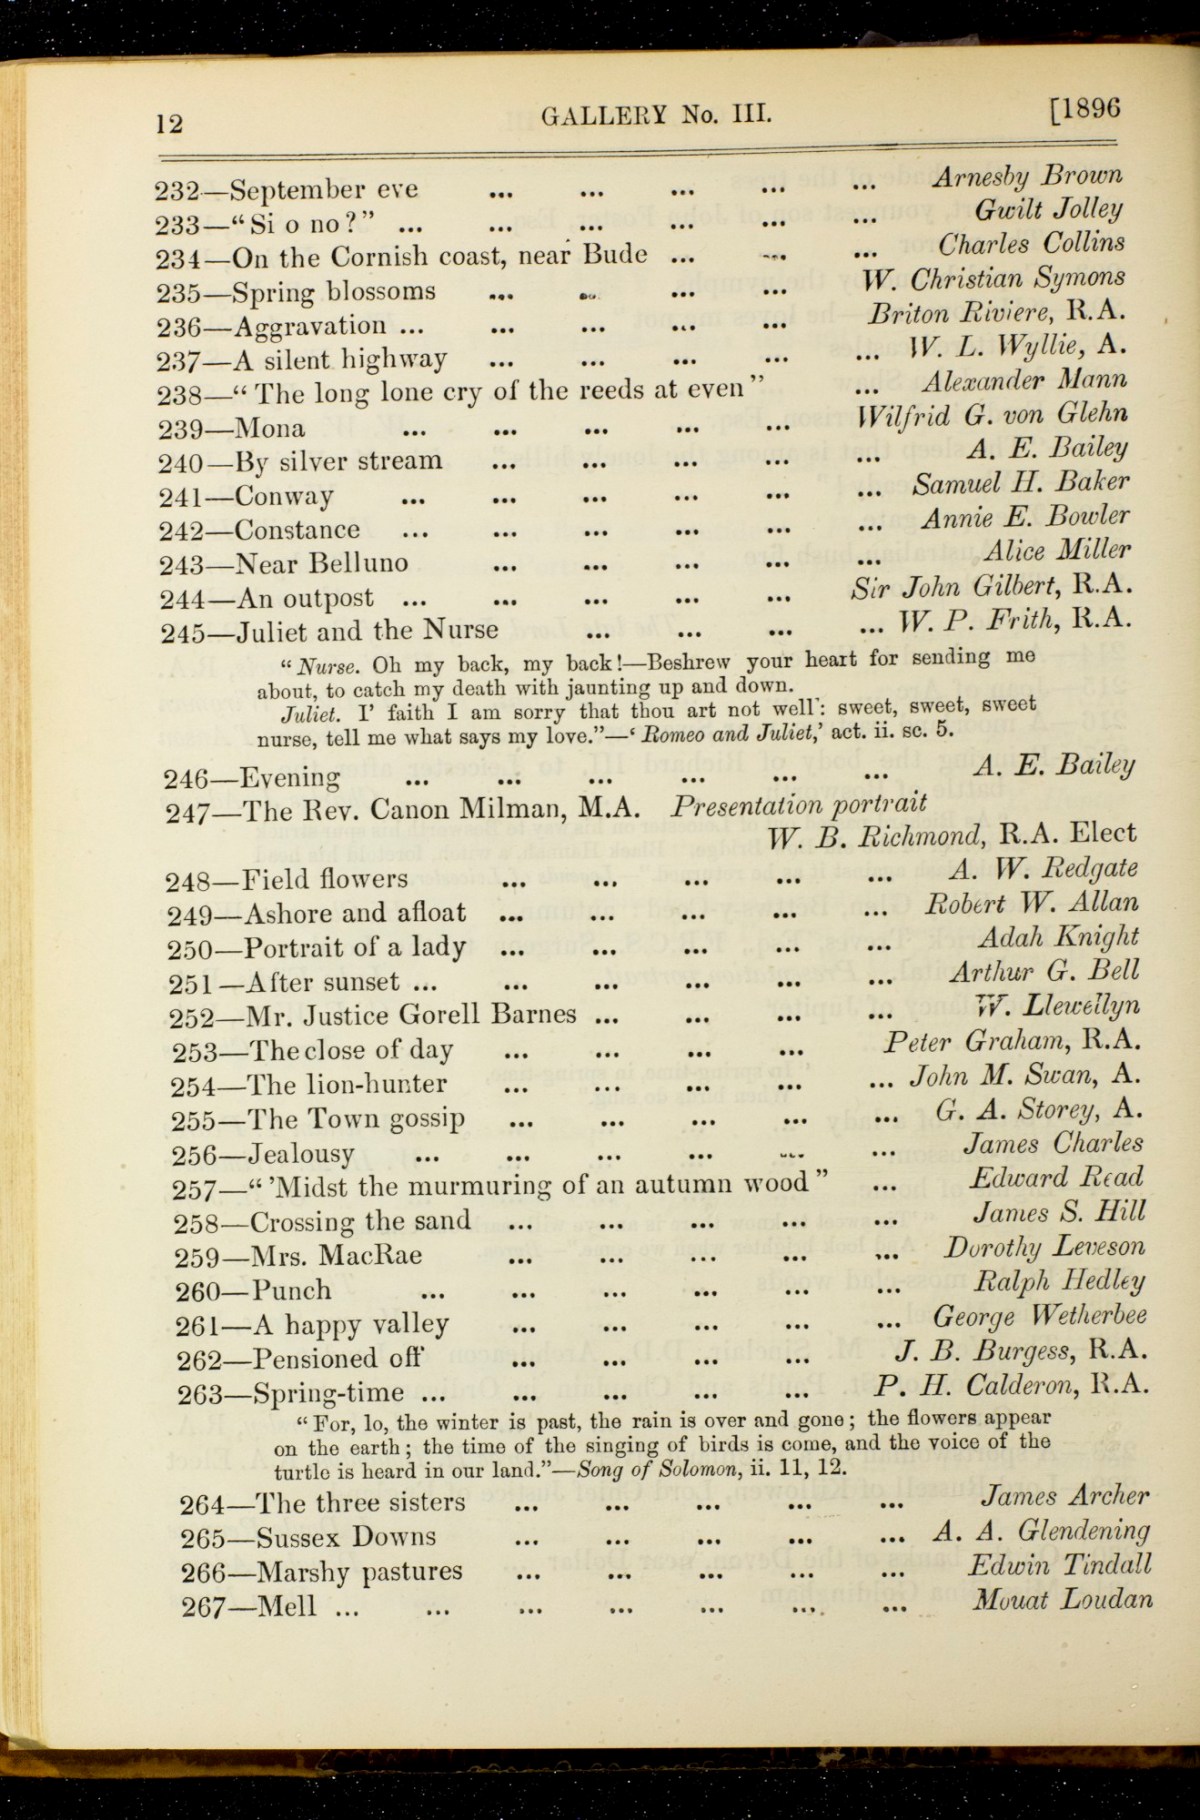 12 GALLERY No. III. [1896
232—September eve ... ... ... ... ... Arnesby Brown
233—“Si o no?” ... ... ... ... ... ... Gwilt Jolley
234—On the Cornish coast, near Bude ... ... ... Charles Collins
235—Spring blossoms ... ... ... ... W. Christian Symons
236—Aggravation ... ... ... ... ... Briton Riviere, R.A.
237—A silent highway ... ... ... ... ... W. L. Wyllie, A.
238—“The long lone cry of the reeds at even” ... Alexander Mann
239—Mona ... ... ... ... ... Wilfrid G. von Glehn
240—By silver stream ... ... ... ... ... A. E. Bailey
241—Conway ... ... ... ... ... ... Samuel H. Baker
242—Constance ... ... ... ... ... ... Annie E. Bowler
243—Near Belluno ... ... ... ... ... Alice Miller
244—An outpost ... ... ... ... ... Sir John Gilbert, R.A.
245—Juliet and the Nurse ... ... ... ... W. P. Frith, R.A.
“Nurse. Oh my back, my back!—Beshrew your heart for sending me
about, to catch my death with jaunting up and down.
Juliet. I’ faith I am sorry that thou art not well: sweet, sweet, sweet
nurse, tell me what says my love.”—‘Romeo and Juliet,’ act. ii. sc. 5.
246—Evening ... ... ... ... ... ... A. E. Bailey
247—The Rev. Canon Milman, M.A. Presentation portrait
W. B. Richmond, R.A. Elect
248—Field flowers ... ... ... ... ... A. W. Redgate
249—Ashore and afloat ... ... ... ... ... Robert W. Allan
250—Portrait of a lady ... ... ... ... ... Adah Knight
251—After sunset ... ... ... ... ... ... Arthur G. Bell
252—Mr. Justice Gorell Barnes ... ... ... ... W. Llewellyn
253—The close of day ... ... ... ... Peter Graham, R.A.
254—The lion-hunter ... ... ... ... ... John M. Swan, A.
255—The Town gossip ... ... ... ... ... G. A. Storey, A.
256—Jealousy ... ... ... ... ... ... James Charles
257—“’Midst the murmuring of an autumn wood” ... Edward Read
258—Crossing the sand ... ... ... ... ... James S. Hill
259—Mrs. MacRae ... ... ... ... ... Dorothy Leveson
260—Punch ... ... ... ... ... ... Ralph Hedley
261—A happy valley ... ... ... ... ... George Wetherbee
262—Pensioned off ... ... ... ... J. B. Burgess, R.A.
263—Spring-time ... ... ... ... ... P. H. Calderon, R.A.
“For, lo, the winter is past, the rain is over and gone; the flowers appear
on the earth; the time of the singing of birds is come, and the voice of the
turtle is heard in our land.”—Song of Solomon, ii. 11, 12.
264—The three sisters ... ... ... ... ... James Archer
265—Sussex Downs ... ... ... ... ... A. A. Glendening
266—Marshy pastures ... ... ... ... ... Edwin Tindall
267—Mell ... ... ... ... ... ... ... Mouat Loudan